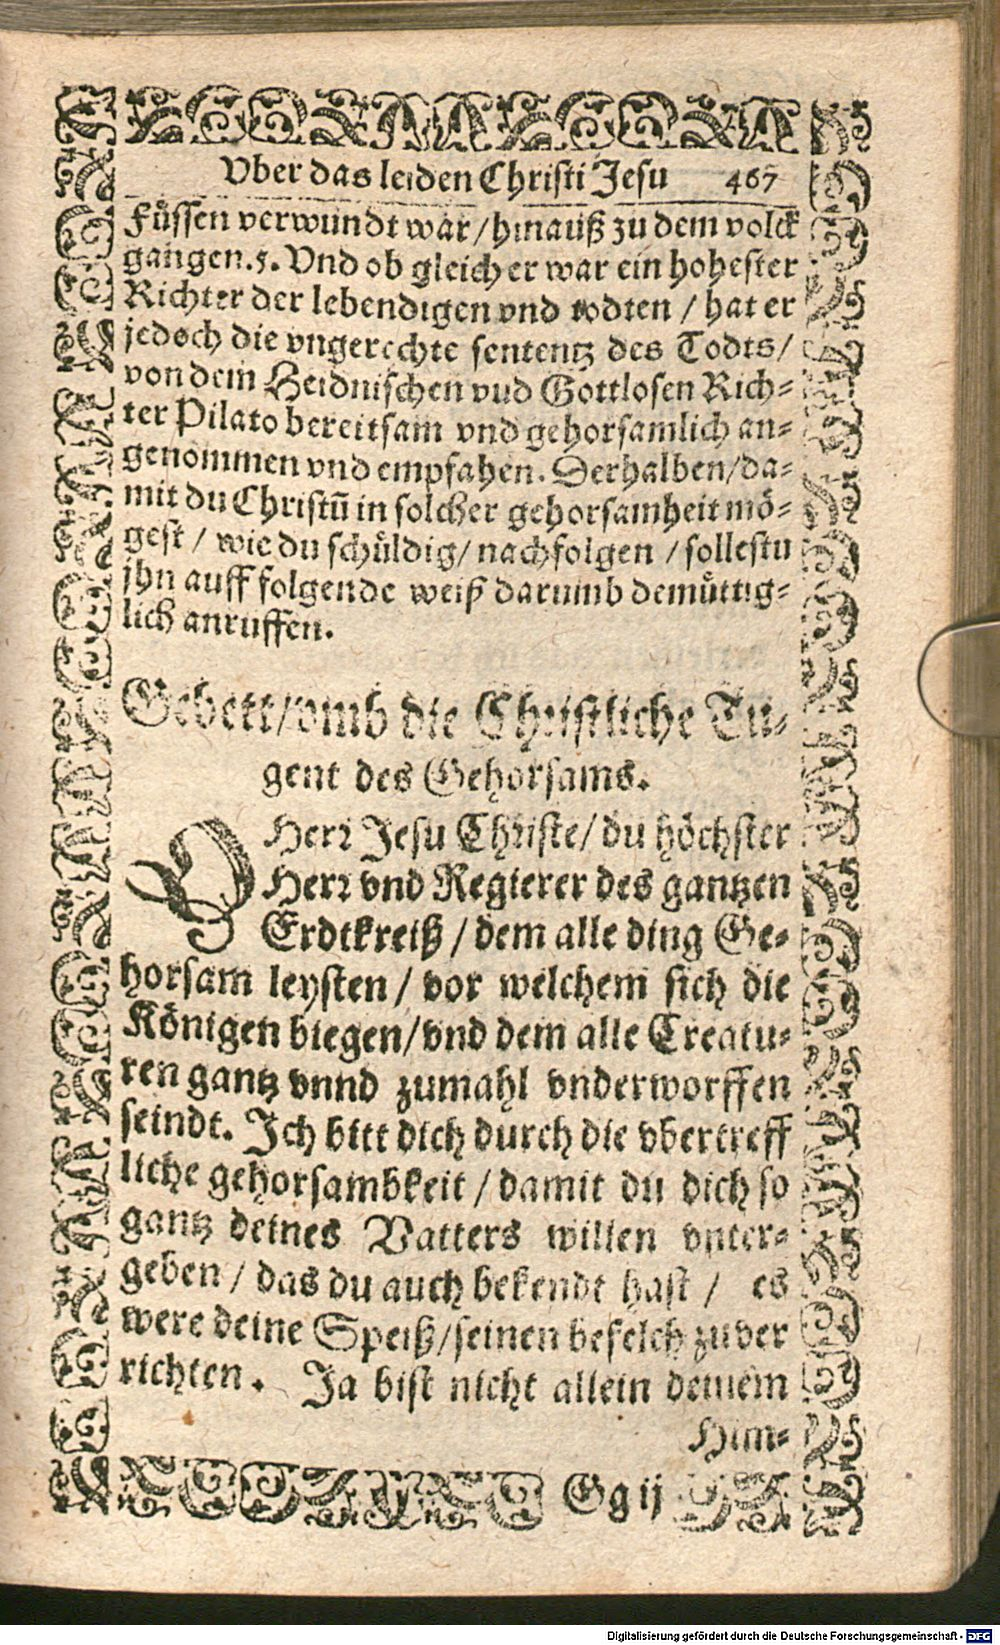 Vber das leiden Christi Jesu 467
Füssen verwundt war / hinauß zu dem volck
gangen. 5. Vnd ob gleich er war ein hohester
Richter der lebendigen vnd todten / hat er
jedoch die vngerechte sententz des Todts /
von dem Heidnischen vud Gottlosen Rich-
ter Pilato bereitsam vnd gehorsamlich an-
genommen vnd empfahen. Derhalben / da-
mit du Christū in solcher gehorsamheit mö-
gest / wie du schüldig / nachfolgen / sollestu
jhn auff folgende weiß darumb demüttig-
lich anruffen.
Gebett / vmb die Christliche Tu-
gent des Gehorsams.
O Herr Jesu Christe / du höchster
Herr vnd Regierer des gantzen
Erdtkreiß / dem alle ding Ge-
horsam leysten / vor welchem sich die
Königen biegen / vnd dem alle Creatu-
ren gantz vnnd zumahl vnderworffen
seindt. Ich bitt dich durch die vbertreff
liche gehorsambkeit / damit du dich so
gantz deines Vatters willen vnter-
geben / das du auch bekendt hast / es
were deine Speiß / seinen befelch zuver
richten. Ja bist nicht allein deinem
Him-
Gg ij
Digitalisierung gefördert durch die Deutsche Forschungsgemeinschaft - DFG